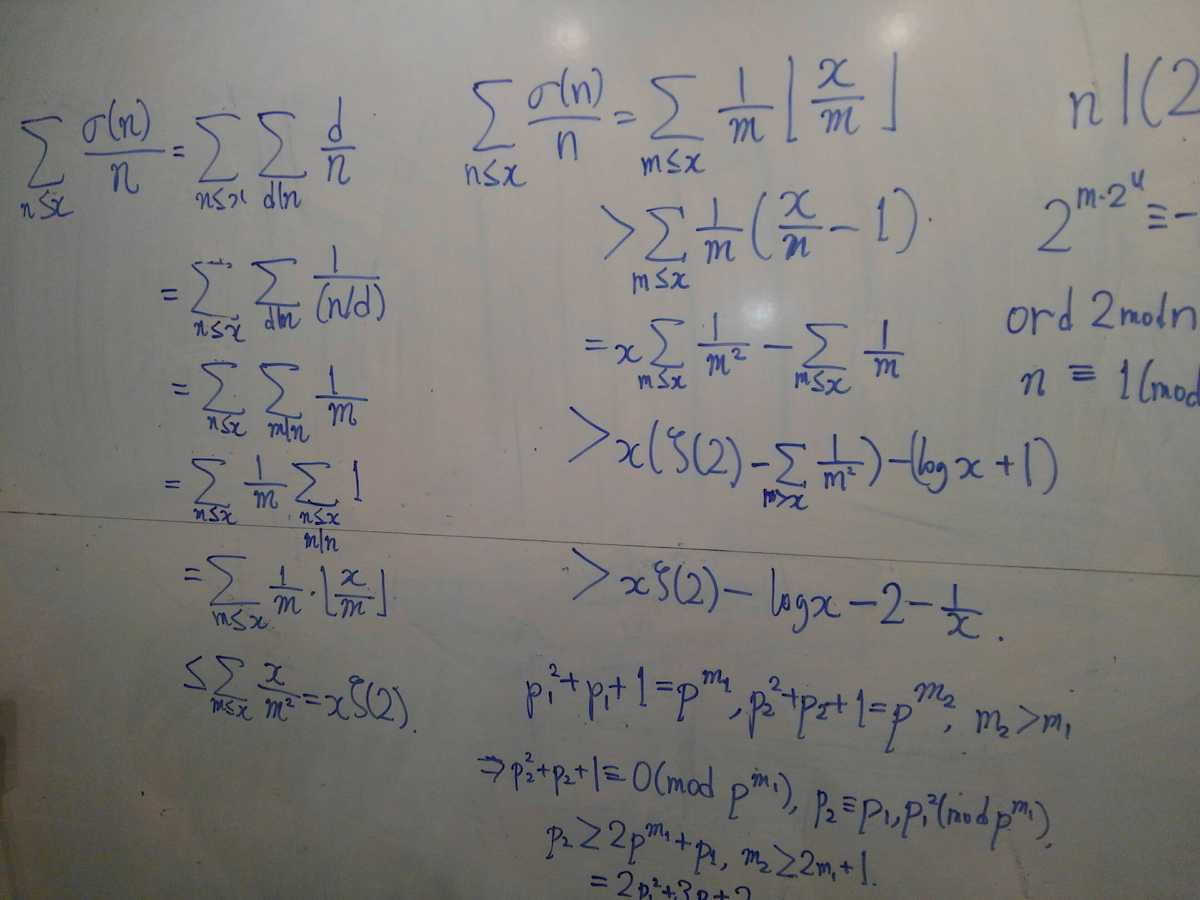 ∑_{n≤x} σ(n)/n = ∑_{n≤x} ∑_{d|n} d/n
= ∑_{n≤x} ∑_{d|n} 1/(n/d)
= ∑_{n≤x} ∑_{m|n} 1/m
= ∑_{n≤x} 1/m ∑_{n≤x, m|n} 1
= ∑_{m≤x} 1/m · ⌊x/m⌋
≤ ∑_{m≤x} x/m² = xζ(2).
∑_{n≤x} σ(n)/n = ∑_{m≤x} 1/m ⌊x/m⌋
> ∑_{m≤x} 1/m (x/n − 1).
= x ∑_{m≤x} 1/m² − ∑_{m≤x} 1/m
> x(ζ(2) − ∑_{m>x} 1/m²) − (log x + 1)
> xζ(2) − log x − 2 − 1/x.
p₁² + p₁ + 1 = p^{m₁}, p₂² + p₂ + 1 = p^{m₂}, m₂ > m₁
⇒ p₂² + p₂ + 1 ≡ 0 (mod p^{m₁}), p₂ ≡ p₁, p₁² (mod p^{m₁}).
p₂ ≥ 2p^{m₁} + p₁, m₂ ≥ 2m₁ + 1.
= 2p₁² + 3p₁ + 2
n | (2
2^{m·2^4} ≡ −
ord 2 mod n
n ≡ 1 (mod